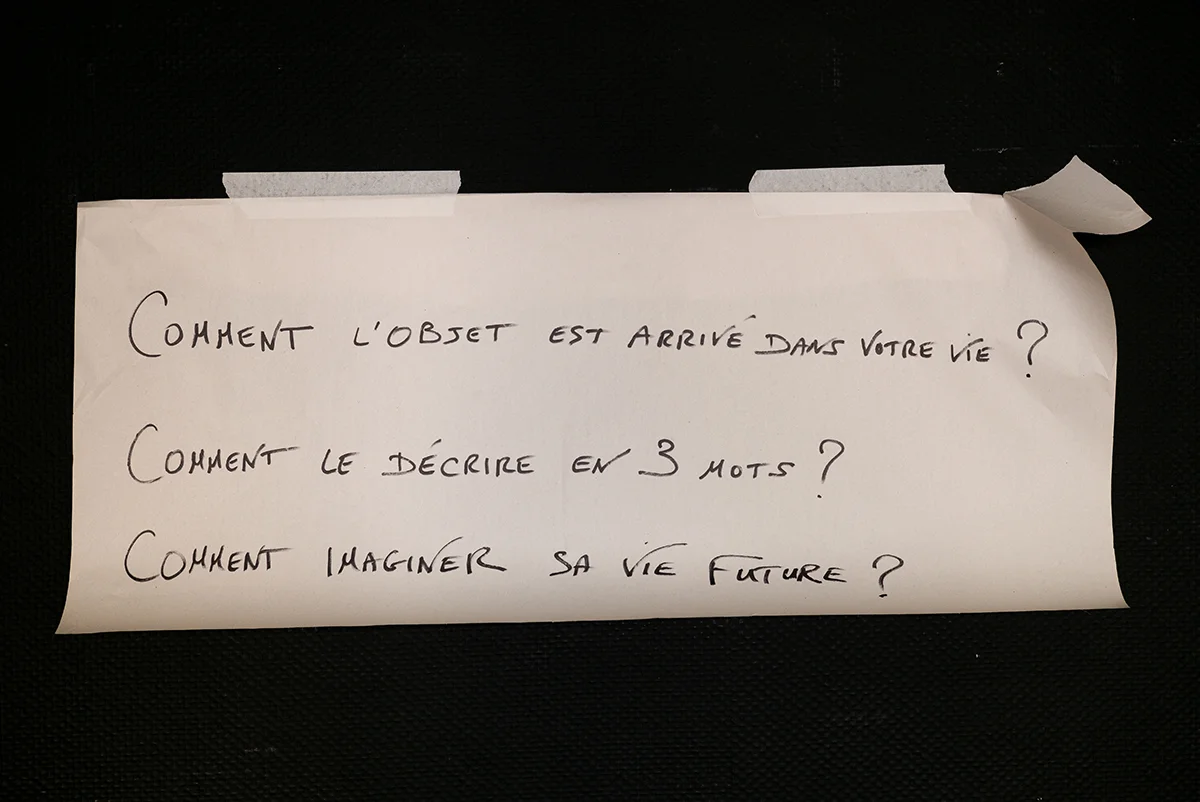 COMMENT L'OBJET EST ARRIVÉ DANS VOTRE VIE ?
COMMENT LE DÉCRIRE EN 3 MOTS ?
COMMENT IMAGINER SA VIE FUTURE ?